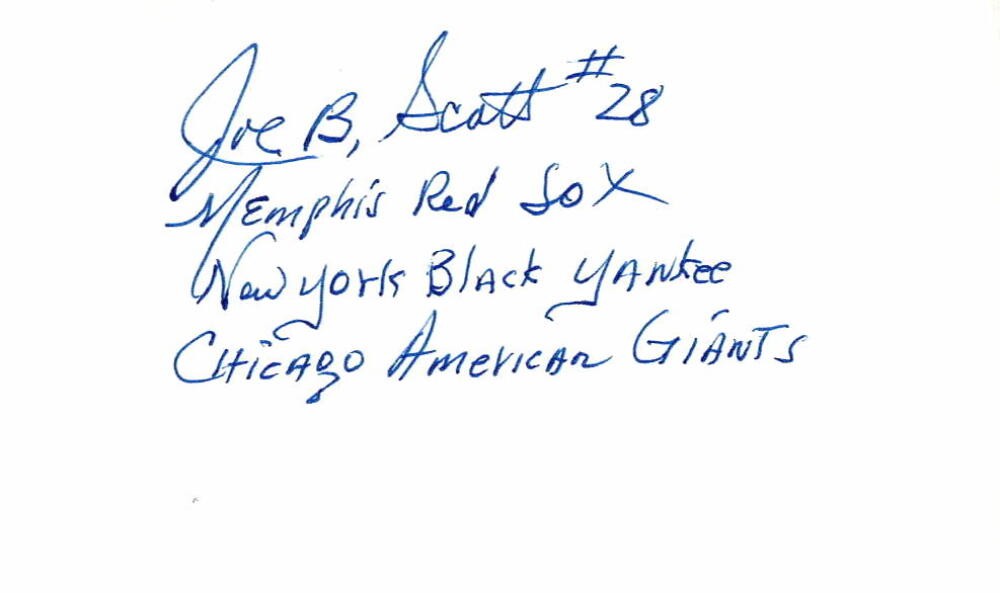 Joe B. Scott #28
Memphis Red Sox
New York Black Yankee
Chicago American Giants